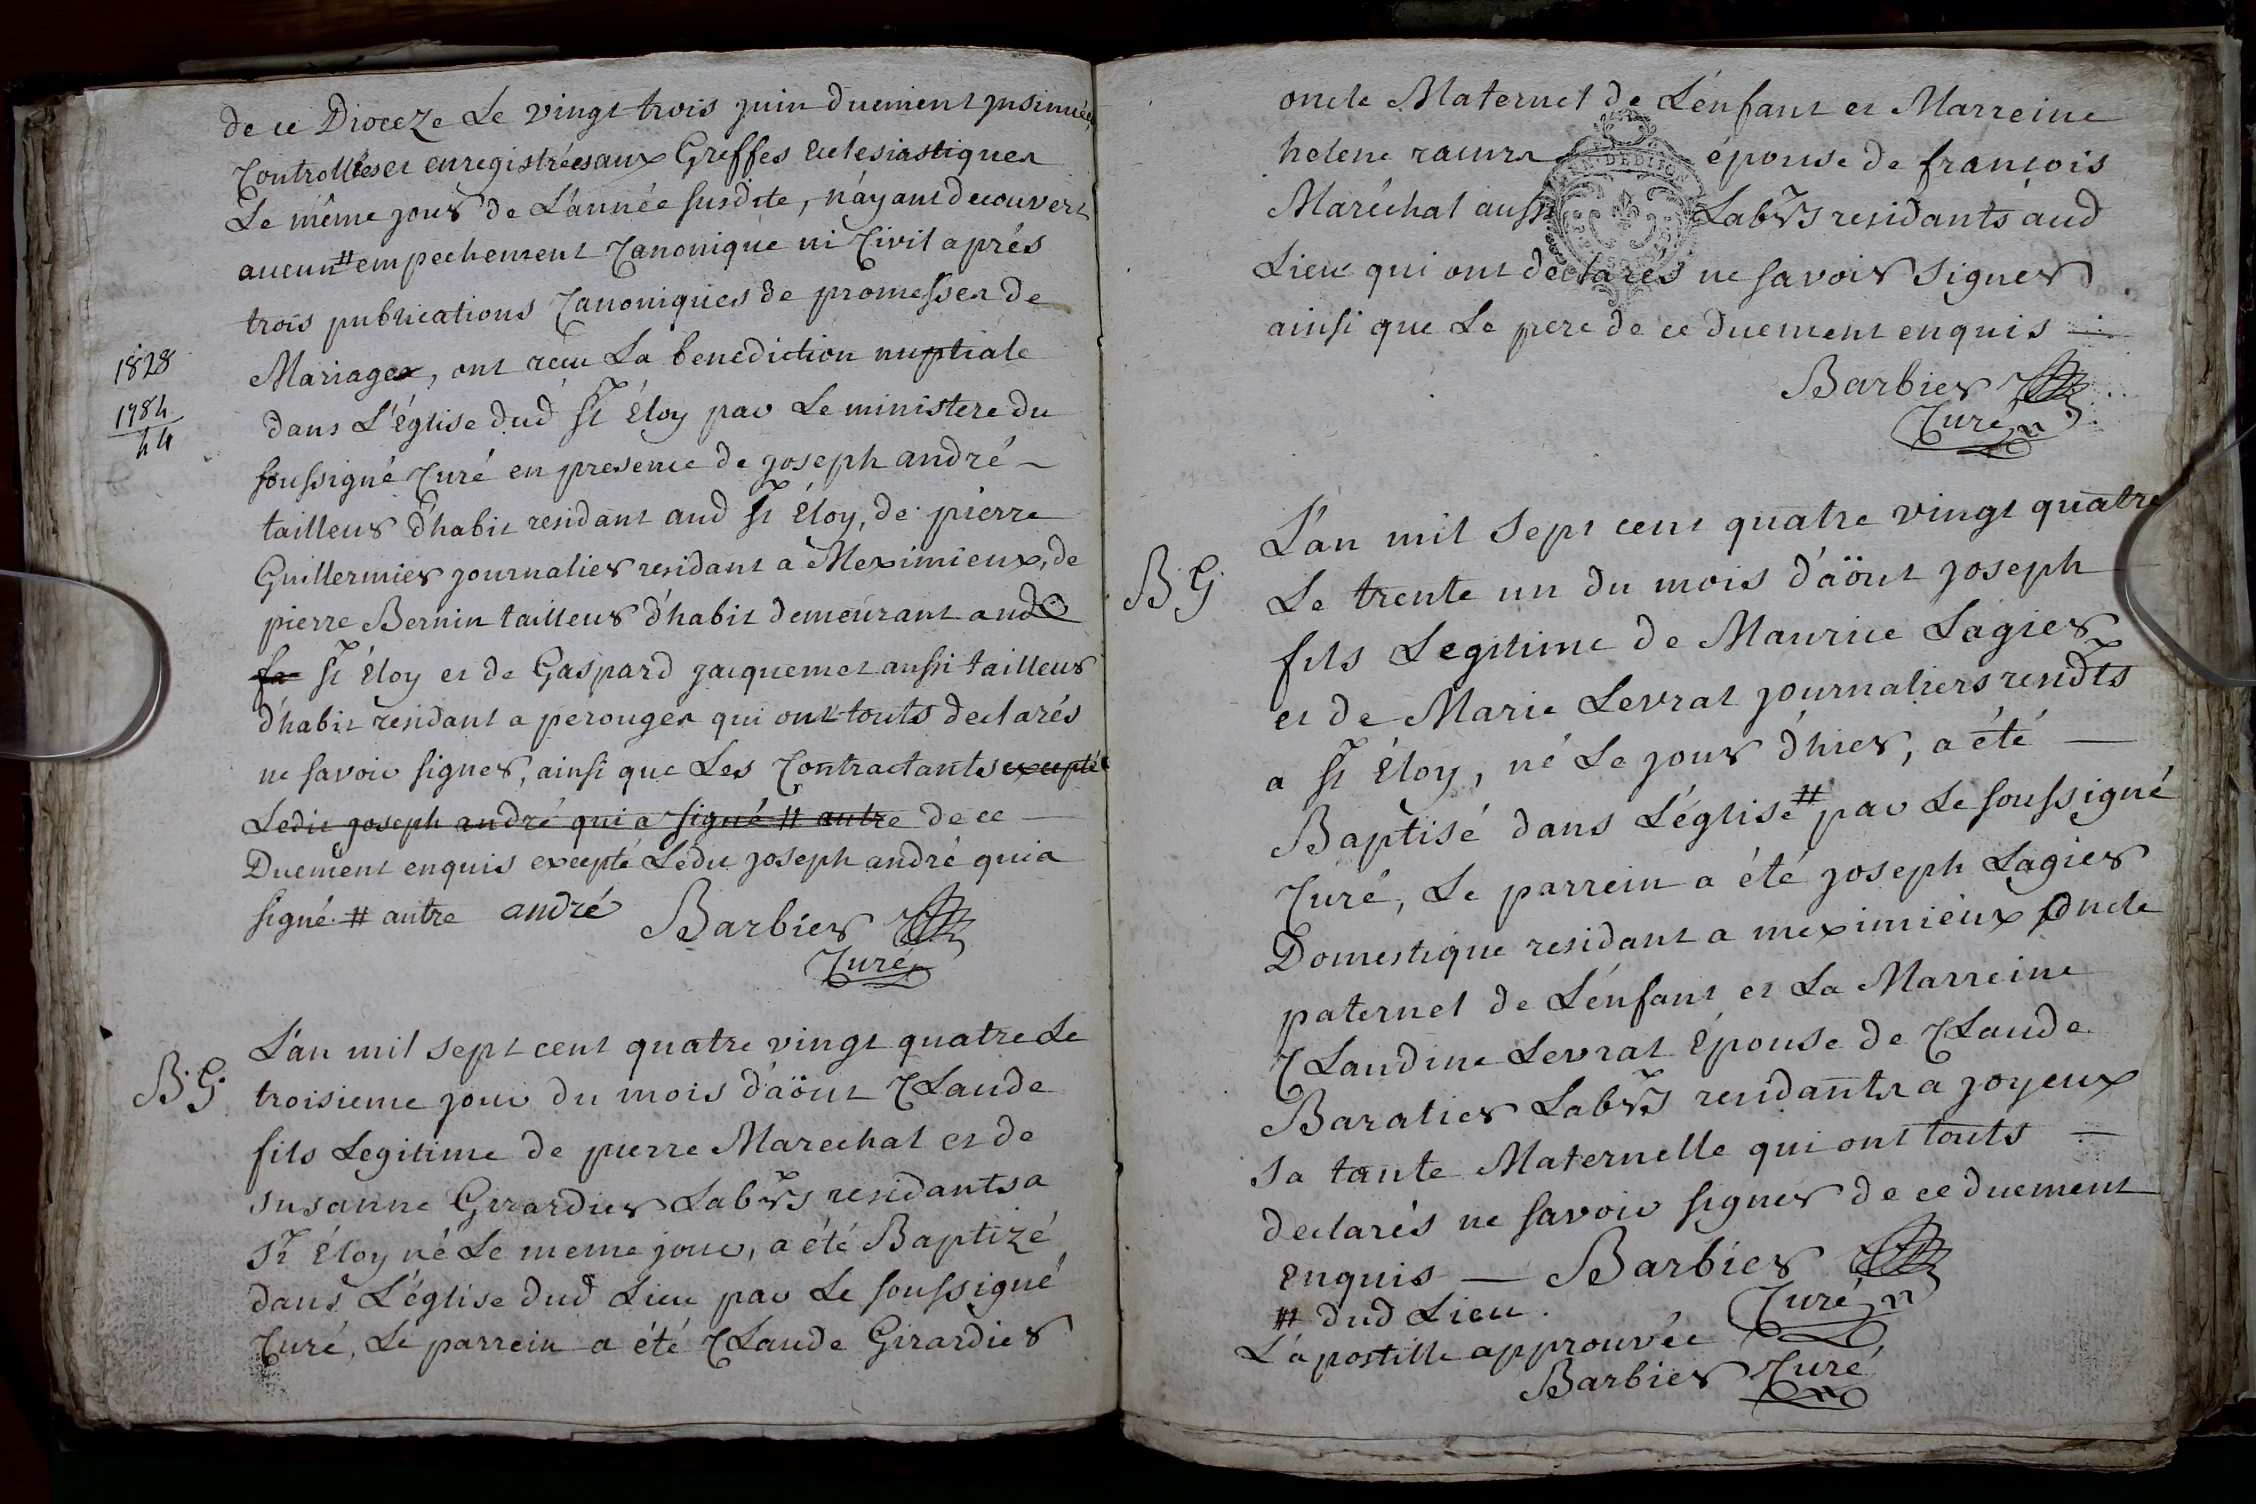 de ce Dioceze Le vingt trois juin duement jnsinuées
Controllées et enregistrées aux Greffes Eclesiastiques
Le même jour de L'année susdite, n'ayant decouvert
aucun # empechement Canonique ni Civil aprés
trois publications Canoniques de promesses de
Mariages, ont recu La benediction nuptiale
dans L'église dud St Éloy par Le ministere du
soussigné Curé en presence de joseph andré
tailleur d'habit residant aud St Éloy, de pierre
Guillermier journalier residant a Meximieux, de
pierre Bernin tailleur d'habit demeurant aud
St Éloy et de Gaspard jacquemet aussi tailleur
d'habit residant a perouges qui ont touts declarés
ne savoir signer, ainsi que Les Contractants excepté
Ledit joseph andré qui a signé # autre de ce
Duement enquis excepté Ledit joseph andré qui a
signé # autre andré Barbier
Curé
1828
1784
44
B. G.
L'an mil sept cent quatre vingt quatre Le
troisieme jour du mois d'aöut Claude
fils Legitime de pierre Marechal et de
susanne Girardier Labrs residants a
St Éloy né Le meme jour, a été Baptizé
dans L'église dud Lieu par Le soussigné
Curé, Le parrein a été Claude Girardier
oncle Maternel de L'énfant et Marreine
helene épouse de françois
Maréchal aussi Labrs residants aud
Lieu qui ont declarés ne savoir signer
ainsi que Le pere de ce duement enquis
Barbier
Curé
B. G.
L'an mil sept cent quatre vingt quatre
Le trente un du mois d'äout joseph
fils Legitime de Maurice Lagier
et de Marie Levrat journaliers residts
a St Éloy, né Le jour d'hier, a été
Baptisé dans L'église # par Le soussigné
Curé, Le parrein a été joseph Lagier
Domestique residant a meximieux oncle
paternel de L'énfant et La Marreine
Claudine Levrat Épouse de Claude
Baratier Labrs residants a joyeux
sa tante Maternelle qui ont touts
declarés ne savoir signer de ce duement
enquis — Barbier
Curé
# dud Lieu.
L'apostille approuvée
Barbier Curé